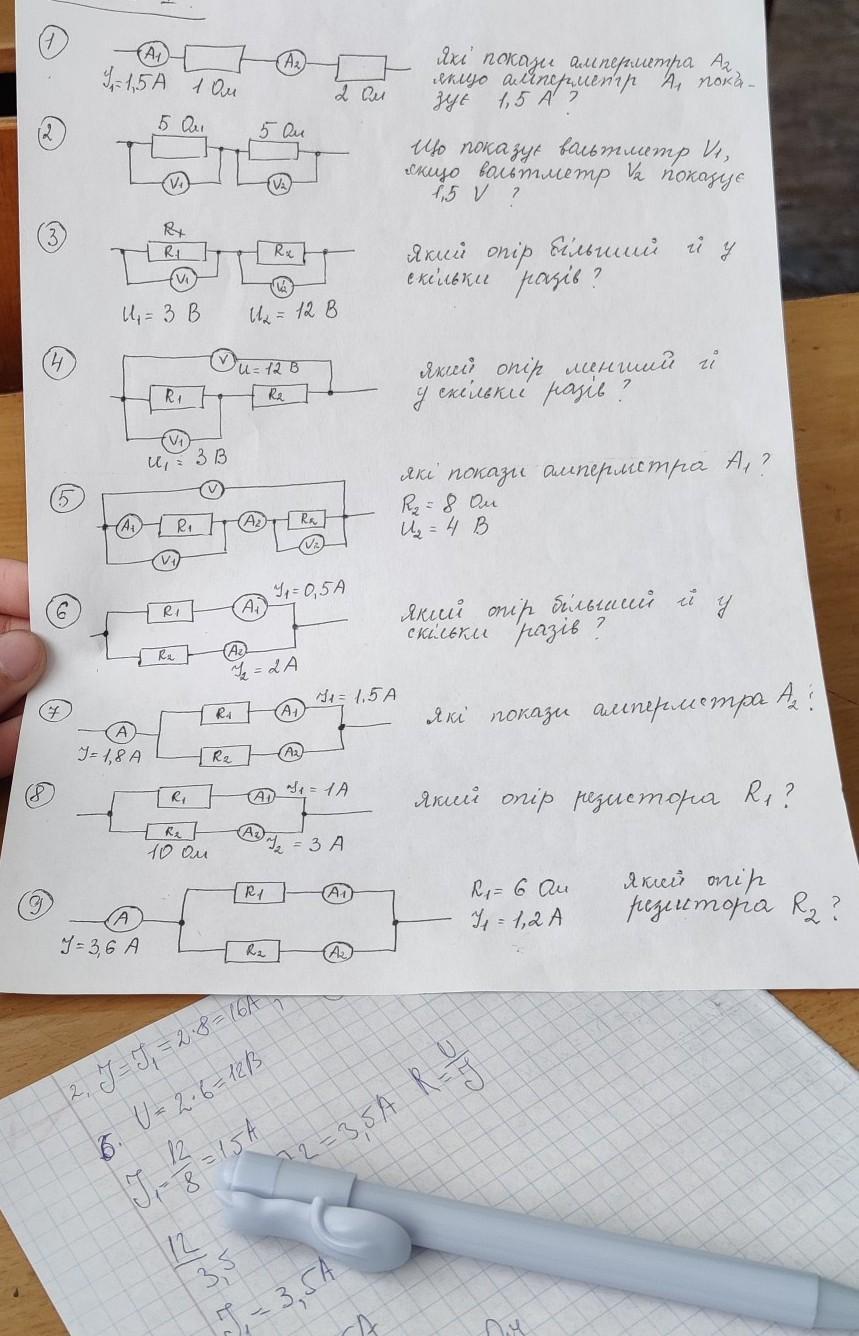 1
A₁
A₂
J₁=1,5A
1 Ом
2 Ом
Які покази амперметра A₂
якщо амперметр A₁ пока-
зує 1,5 А ?
2
5 Ом
5 Ом
V₁
V₂
Що показує вольтметр V₁,
якщо вольтметр V₂ показує
1,5 V ?
3
Rx
R₁
R₂
V₁
V₂
U₁= 3 В
U₂= 12 В
Який опір більший й у
скільки разів ?
4
V
U=12 В
R₁
R₂
V₁
U₁= 3 В
Який опір менший й
у скільки разів ?
5
V
A₁
R₁
A₂
R₂
V₁
V₂
які покази амперметра A₁?
R₂= 8 Ом
U₂= 4 В
6
J₁=0,5А
R₁
A₁
R₂
A₂
J₂=2А
Який опір більший й у
скільки разів ?
7
J₁= 1,5 А
A
R₁
A₁
J=1,8А
R₂
A₂
які покази амперметра A₂?
8
R₁
A₁
J₁=1А
R₂
A₂
10 Ом
J₂= 3 А
Який опір резистора R₁?
9
A
J=3,6 А
R₁
A₁
R₂
A₂
R₁= 6 Ом
J₁= 1,2 А
Який опір
резистора R₂?
2. J=J₁=2·8=16А,
U=2·6=12В
6.
J₁=12/8=15А
2=3,5А
R=U/J
12/3,5
J₁=3,5А